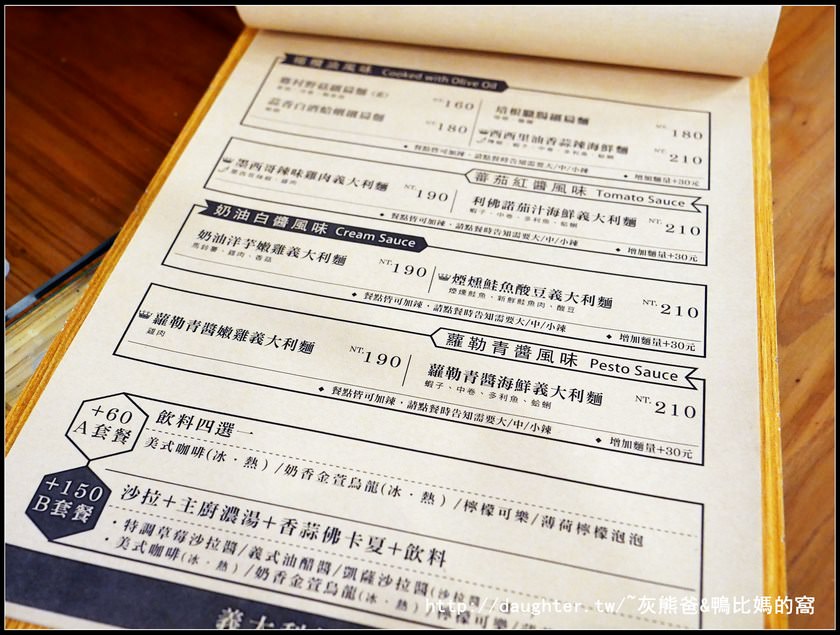 橄欖油風味 Cooked with Olive Oil
鄉村野菇細扁麵(素)
NT.160
蒜香白酒蛤蜊細扁麵
NT.180
培根臘腸細扁麵
NT.180
西西里油香蒜辣海鮮麵
辣椒、蝦子、中卷、多利魚、蛤蜊
NT.210
◆ 餐點皆可加辣,請點餐時告知需要大/中/小辣 ◆ 增加麵量+30元
蕃茄紅醬風味 Tomato Sauce
墨西哥辣味雞肉義大利麵
墨西哥辣椒、雞肉
NT.190
利佛諾茄汁海鮮義大利麵
蝦子、中卷、多利魚、蛤蜊
NT.210
◆ 餐點皆可加辣,請點餐時告知需要大/中/小辣 ◆ 增加麵量+30元
奶油白醬風味 Cream Sauce
奶油洋芋嫩雞義大利麵
馬鈴薯、雞肉、香菇
NT.190
煙燻鮭魚酸豆義大利麵
煙燻鮭魚、新鮮鮭魚肉、酸豆
NT.210
◆ 餐點皆可加辣,請點餐時告知需要大/中/小辣 ◆ 增加麵量+30元
蘿勒青醬風味 Pesto Sauce
蘿勒青醬嫩雞義大利麵
雞肉
NT.190
蘿勒青醬海鮮義大利麵
蝦子、中卷、多利魚、蛤蜊
NT.210
◆ 餐點皆可加辣,請點餐時告知需要大/中/小辣 ◆ 增加麵量+30元
+60
A套餐
飲料四選一
美式咖啡(冰‧熱)/奶香金萱烏龍(冰‧熱)/檸檬可樂/薄荷檸檬泡泡
+150
B套餐
沙拉+主廚濃湯+香蒜佛卡夏+飲料
‧特調草莓沙拉醬/義式油醋醬/凱薩沙拉醬
‧美式咖啡(冰‧熱)/奶香金萱烏龍(冰‧熱)/檸檬可樂/
義大利
http://daughter.tw/~灰熊爸&鴨比媽的窩